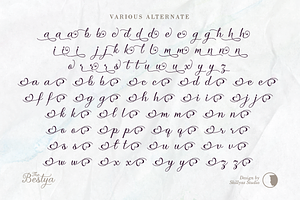 VARIOUS ALTERNATE
a a a b b c d d d e e f g g h h
i i i j j k k l l m m m n n n
o r r s t t u u v x y z
a a a b b b c c c d d d e e e
f f f g g g h h h i i i j j j
k k k l l l m m m n n n
o o o p p p q q q r r r
s s s t t t u u u v v v
w w w x x x y y y z z z
The Bestya
Design by
Skillyas Studio